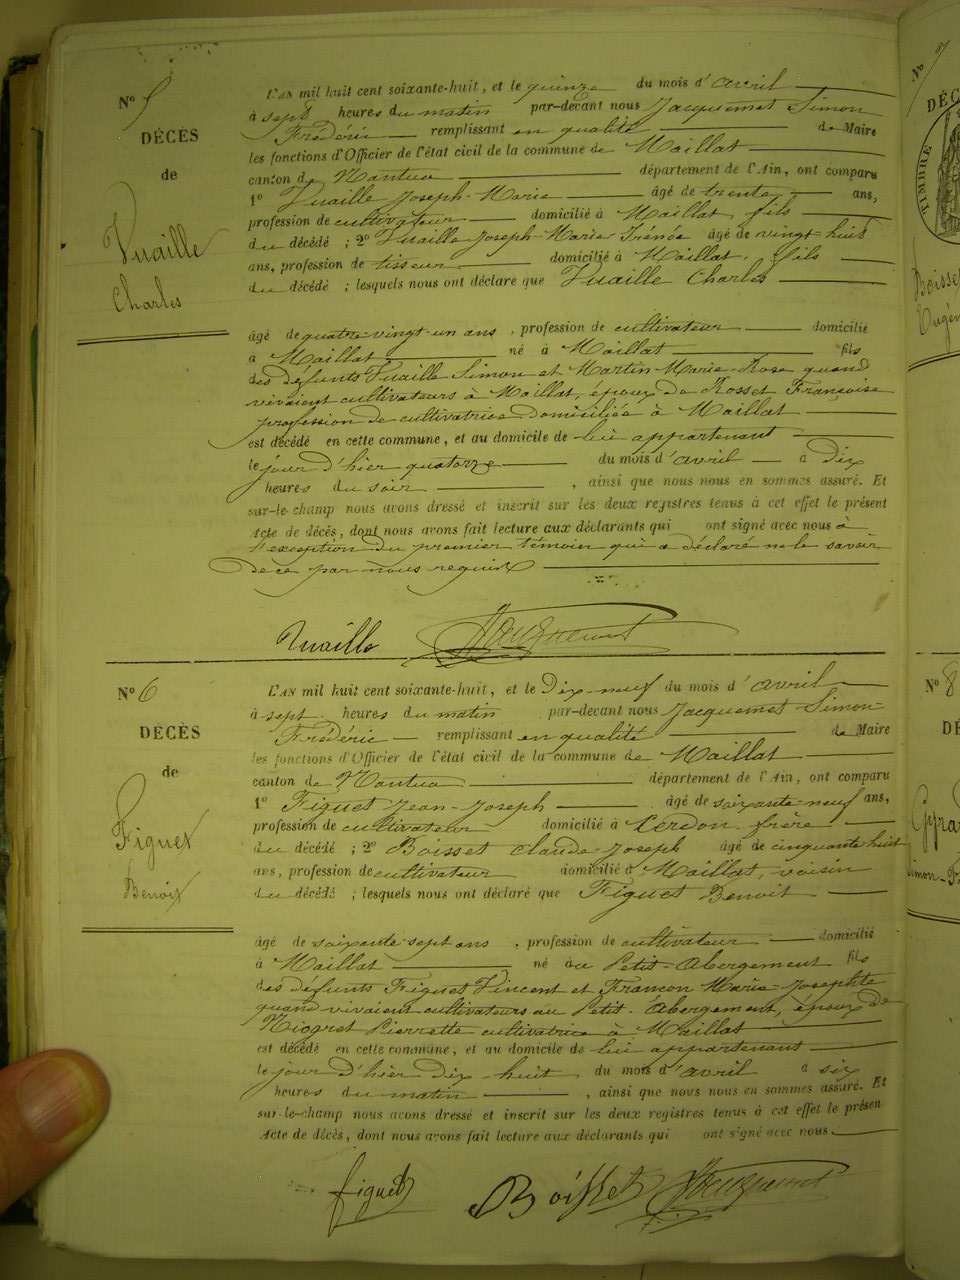 N° 5
DÉCÈS
de
Vuaille
Charles
L'AN mil huit cent soixante-huit, et le quinze du mois d'avril
à sept heures du matin par-devant nous Jacquemet Simon
Frédéric remplissant en qualité de Maire
les fonctions d'Officier de l'état civil de la commune de Maillat
canton de Nantua département de l'Ain, ont comparu
1° Vuaille Joseph-Marie âgé de trente ans,
profession de cultivateur domicilié à Maillat, fils
du décédé ; 2° Vuaille Joseph-Marie-Irénée âgé de vingt-huit
ans, profession de tisseur domicilié à Maillat, fils
du décédé ; lesquels nous ont déclaré que Vuaille Charles
âgé de quatre-vingt-un ans , profession de cultivateur domicilié
à Maillat né à Maillat fils
des défunts Vuaille Simon et Martin-Marie-Rose quand
vivaient cultivateurs à Maillat, époux de Rosset Françoise
profession de cultivatrice domiciliée à Maillat
est décédé en cette commune, et au domicile de lui appartenant
le jour d'hier quatorze du mois d'avril à dix
heures du soir , ainsi que nous nous en sommes assuré. Et
sur-le-champ nous avons dressé et inscrit sur les deux registres tenus à cet effet le présent
Acte de décès, dont nous avons fait lecture aux déclarants qui ont signé avec nous à
l'exception du premier témoin qui a déclaré ne le savoir
de ce par nous requis
Vuaille Jacquemet
N° 6
DÉCÈS
de
Figuet
Benoit
L'AN mil huit cent soixante-huit, et le Dix-neuf du mois d'avril
à sept heures du matin par-devant nous Jacquemet Simon-
Frédéric remplissant en qualité de Maire
les fonctions d'Officier de l'état civil de la commune de Maillat
canton de Nantua département de l'Ain, ont comparu
1° Figuet Jean-Joseph âgé de soixante-neuf ans,
profession de cultivateur domicilié à Cerdon frère
du décédé ; 2° Boisset Claude-Joseph âgé de cinquante-huit
ans, profession de cultivateur domicilié à Maillat, voisin
du décédé ; lesquels nous ont déclaré que Figuet Benoit
âgé de soixante-sept ans , profession de cultivateur domicilié
à Maillat né au Petit-Abergement fils
des défunts Figuet Vincent et Françon Marie-Josephte
quand vivaient cultivateurs au Petit-Abergement, époux de
Niogret Pierrette cultivatrice à Maillat
est décédé en cette commune, et au domicile de lui appartenant
le jour d'hier dix-huit du mois d'avril à six
heures du matin , ainsi que nous nous en sommes assuré. Et
sur-le-champ nous avons dressé et inscrit sur les deux registres tenus à cet effet le présent
Acte de décès, dont nous avons fait lecture aux déclarants qui ont signé avec nous
figuet Boisset Jacquemet
N° 7
DÉC
TIMBRE
Boisse
Eugén
N° 8
DÉ